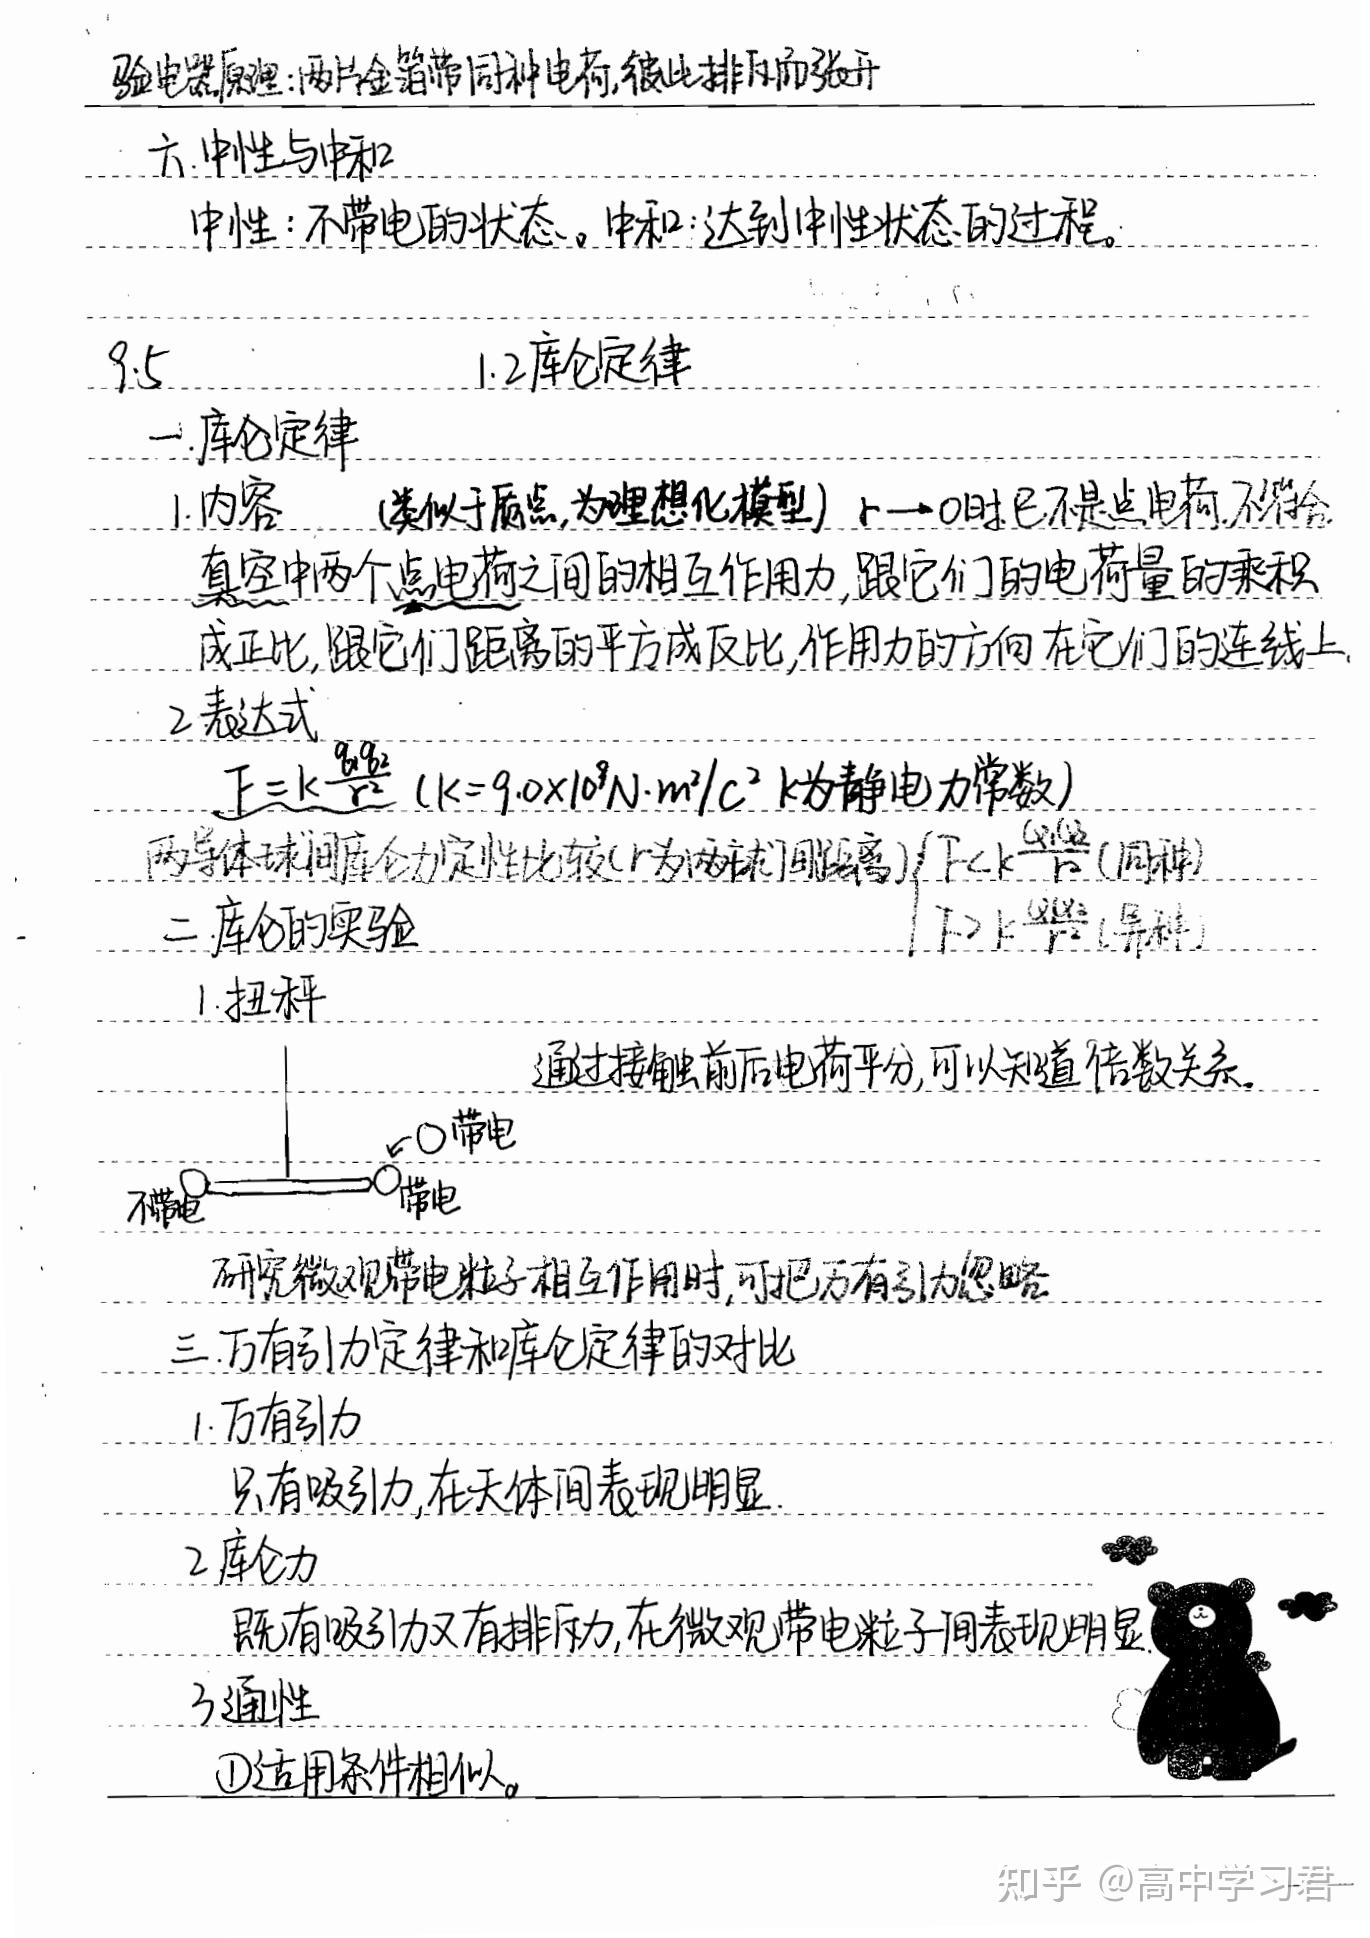 验电器原理:两片金箔带同种电荷,彼此排斥而张开
六.中性与中和
中性:不带电的状态。中和:达到中性状态的过程。
9.5 1.2库仑定律
一.库仑定律
1.内容 (类似于质点,为理想化模型) r→0时已不是点电荷.不符合.
真空中两个点电荷之间的相互作用力,跟它们的电荷量的乘积
成正比,跟它们距离的平方成反比,作用力的方向在它们的连线上.
2.表达式
F=k q₁q₂/r² (k=9.0×10⁹N·m²/C² k为静电力常数)
两导体球间库仑力定性比较(r为两球间距离) { F<k q₁q₂/r² (同种)
F>k q₁q₂/r² (异种)
二.库仑的实验
1.扭秤
通过接触前后电荷平分,可以知道倍数关系。
带电
不带电 带电
研究微观带电粒子相互作用时,可把万有引力忽略
三.万有引力定律和库仑定律的对比
1.万有引力
只有吸引力,在天体间表现明显.
2.库仑力
既有吸引力又有排斥力,在微观带电粒子间表现明显.
3.通性
①适用条件相似。
知乎 @高中学习君